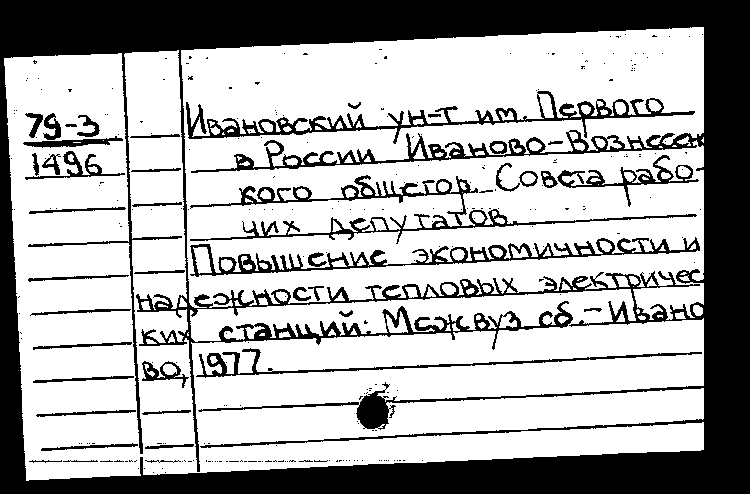 79-3
1496
Ивановский ун-т им. Первого
в России Иваново-Вознесен
кого общегор. Совета рабо-
чих депутатов.
Повышение экономичности и
надежности тепловых электричес
ких станций: Межвуз. сб. - Ивано
во, 1977.